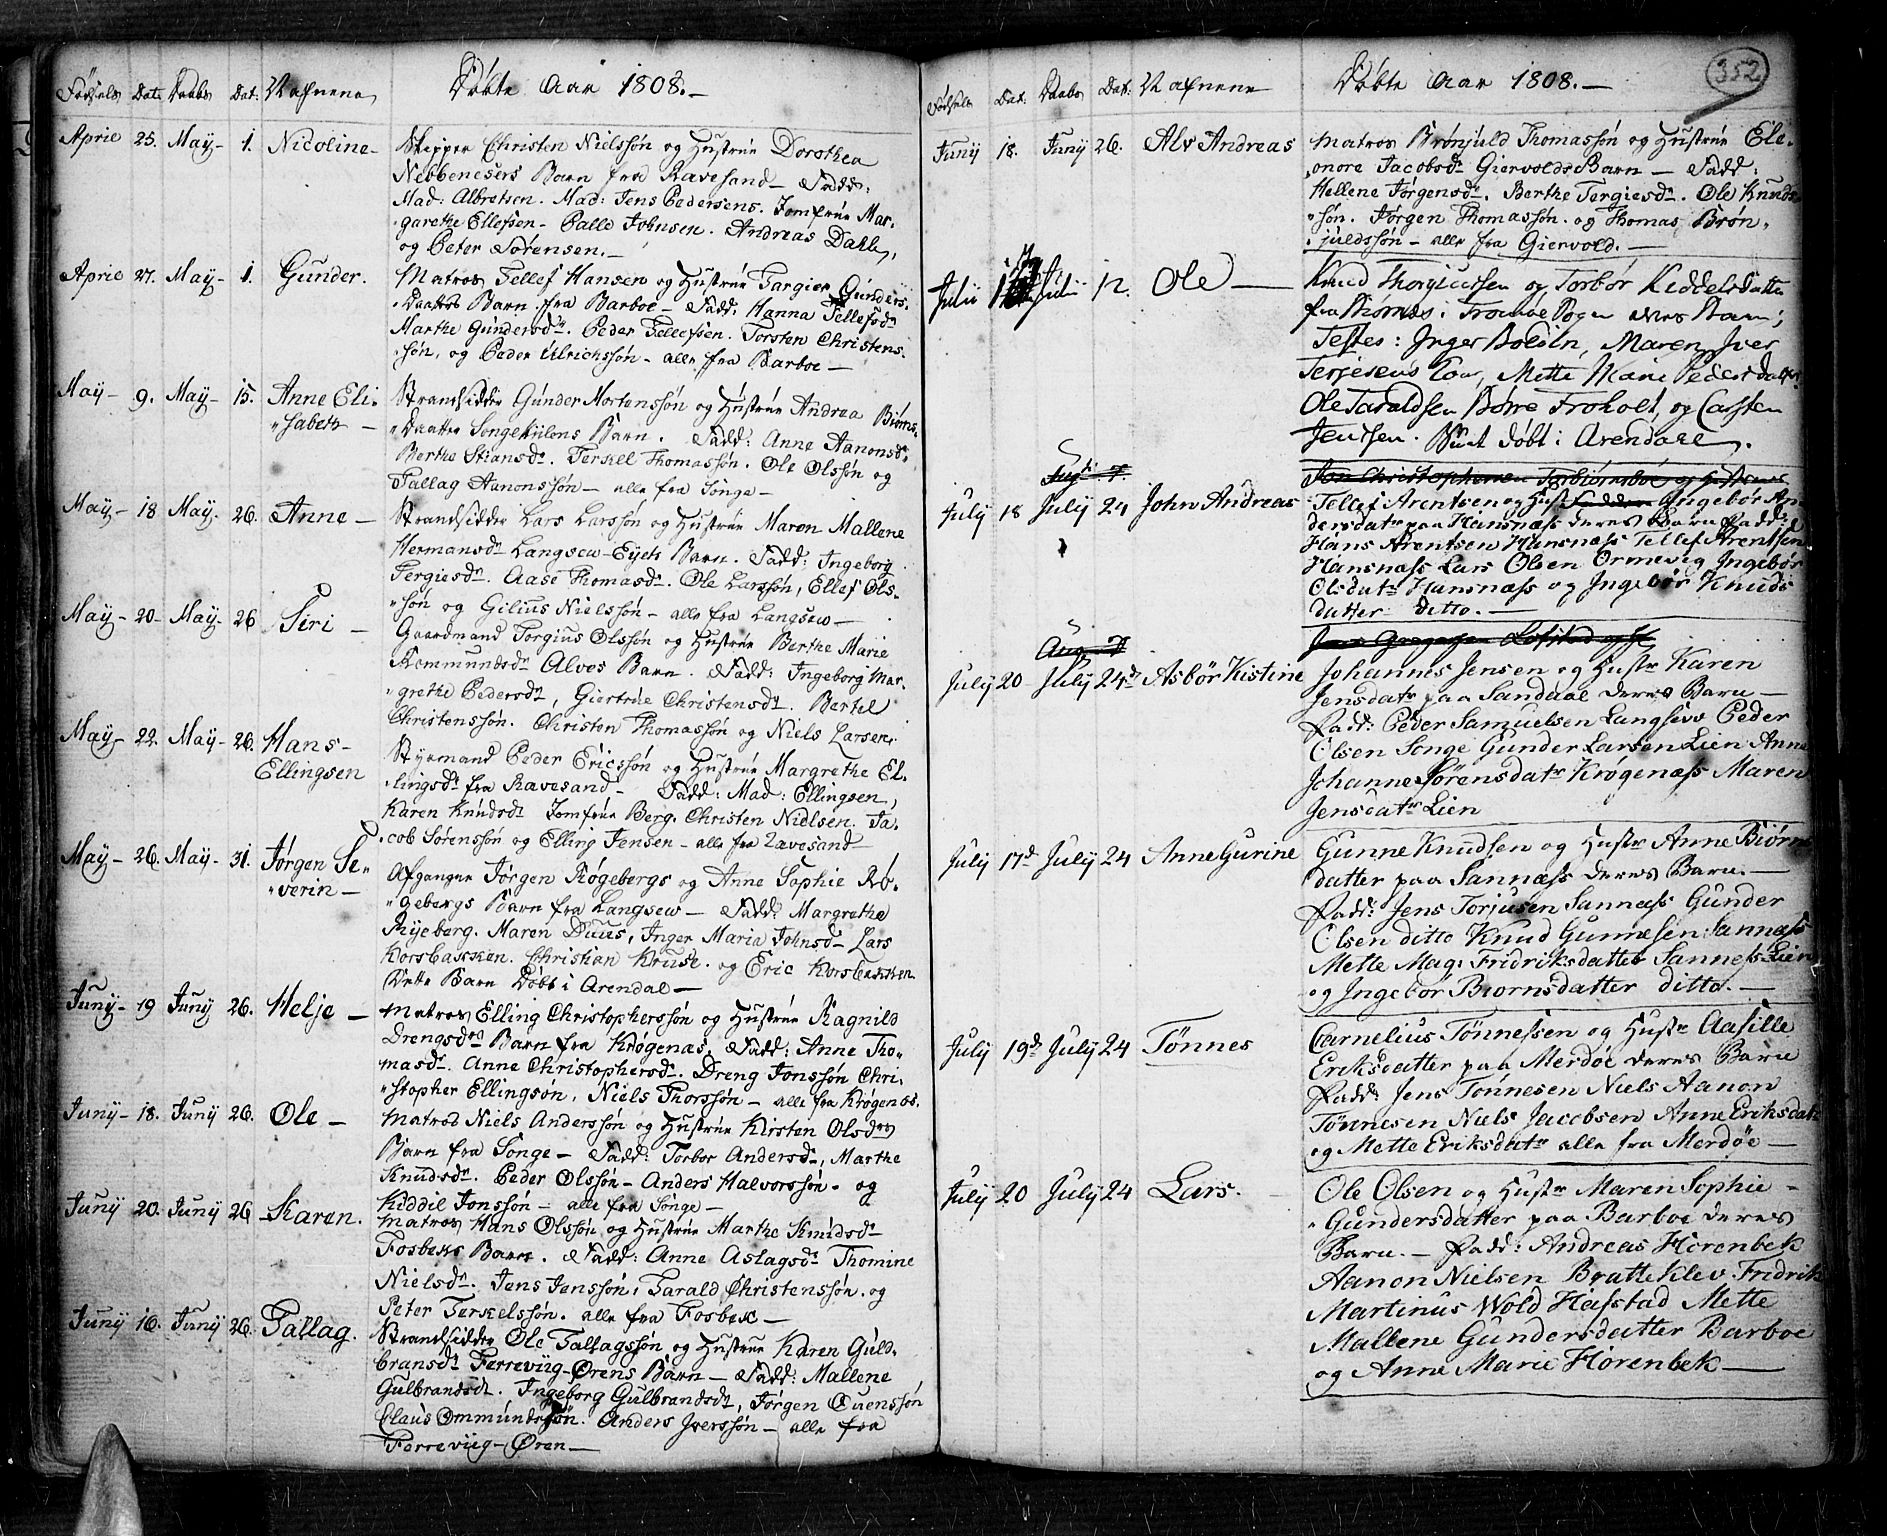 Fødsels Dat: Daabs Dat: Nafnene
Døbte Aar 1808.
April 25. May 1. Nicoline
Skipper Christen Nielssøn og Hustrue Dorothea
Nebbenesers Barn fra Ravesand - Fadd:
Mad: Albretsen. Mad: Jens Pedersens. Jomfrue Mar-
garethe Ellefsen - Palle Johnsen. Andreas Dahl,
og Peter Sørensen.
April 27. May 1. Gunder.
Matros Tellef Hansen og Hustrue Targier Gunders-
Daatter Barn fra Barboe - Fadd: Hanna Tellefsdr
Marthe Gundersdr. Peder Tellefsen. Torsten Christens-
søn, og Peder Ulrichssøn - alle fra Barboe
May 9. May 15. Anne Eli-
sabeth
Strandsidder Gunder Mortenssøn og Hustrue Andrea Biørns-
Daatter Songekiilens Barn. Fadd: Anne Aanonsdr
Berthe Stiansdr. Terkel Thomassøn. Ole Olssøn og
Tallag Aanonssøn - alle fra Songe
May 18 May 26. Anne
Strandsidder Lars Larssøn og Hustrue Maren Mallene
Hermansdr Langsew-Eyets Barn. Fadd: Ingeborg
Tergiesdr. Aase Thomasdr. Ole Larssøn, Ellef Ols-
søn og Gilius Nielssøn - alle fra Langsew
May 20 May 26 Siri
Gaardmand Torgius Olssøn og Hustrue Berthe Marie
Rommundsdr Alves Barn. Fadd: Ingeborg Mar-
grethe Pedersdr, Giertrue Christensdr. Bertel
Christenssøn. Christen Thomassøn og Niels Larsen.
May 22. May 26. Hans
Ellingsen
Styrmand Peder Ericssøn og Hustrue Margrethe El-
lingsdr fra Ravesand - Fadd: Mad: Ellingsen,
Karen Knudsdr Jomfrue Berg. Christen Nielsen. Ja-
cob Sørenssøn og Elling Jensen - alle fra Ravesand
May 26. May 31. Jørgen Se-
verin
Afgangne Jørgen Røgebergs og Anne Sophie Rø-
gebergs Barn fra Langsew - Fadd: Margrethe
Ryeberg. Maren Duus, Inger Maria Johnsdr Lars
Korsbakken. Christian Kruse. og Eric Korsbakken
Dette Barn Døbt i Arendal
Juny 19 Juny 26. Helje
Matros Elling Christopherssøn og Hustrue Ragnild
Drengsdrs Barn fra Krøgenæs. Fadd: Anne Tho-
masdr. Anne Christophersdr. Dreng Jonssøn Chri-
stopher Ellingsøn, Niels Thorssøn - alle fra Krøgenæs.
Juny 18. Juny 26. Ole
Matros Niels Anderssøn og Hustrue Kirsten Olsdrs
Barn fra Songe - Fadd: Torbor Andersdr, Marthe
Knudsdr. Peder Olssøn - Anders Halvorssøn - og
Kiddil Jonssøn - alle fra Songe
Juny 20. Juny 26 Karen.
Matros Hans Olssøn og Hustrue Marthe Knudsdr
Fosbeks Barn. Fadd: Anne Aslagsdr Thomine
Nielsdr. Jens Jenssøn, Tarald Christenssøn. og
Peter Terkelssøn. alle fra Fosbek
Juny 16. Juny 26. Tallag.
Strandsidder Ole Tallagssøn og Hustrue Karen Guld-
bransdr Ferreviig-Ørens Barn - Fadd: Mallene
Gulbrandsdr. Ingeborg Gulbrandsdr, Jørgen Ouenssøn
Claus Ommundssøn. Anders Iverssøn - alle fra
Ferreviig-Øren
352
Fødsels Dat: Daabs Dat: Nafnene
Døbte Aar 1808.
Juny 18. Juny 26. Alv Andreas
Matros Brønjuld Thomassøn og Hustrue Ele-
onore Jacobsdr Giervolds Barn - Fadd:
Hellene Jørgensdr. Berthe Tergiesdr. Ole Knuds-
søn. Jørgen Thomassøn. og Thomas Brøn-
juldssøn - alle fra Giervold.
Julii Julii 12. Ole
Knud Thorgiussen og Torbør Kiddelsdatter
fra i Tromøe Sogn deres Barn;
Testes: Inger Boløln, Maren Iver
Terjesens Mette Marie Pedersdatter
Ole Taraldsen Børre Froholt, og Carsten
Jenssen. døbt i Arendal.
July 18 July 24 John Andreas
Tellef Arentsen og Hustr Ingebør An-
dersdatr paa Hansnæss deres Barn Fadd:
Hans Arentsen Hansnæss Tellef Arentsen
Hansnæss Lars Olsen Ormevig Ingebør
Olsdatr Hansnæss og Ingebør Knuds
datter ditto.
July 20 July 24d Asbør Kistine
Johannes Jensen og Hustr Karen
Jensdatr paa Sandaae deres Barn
Fadd: Peder Samuelsen Langsevv Peder
Olsen Songe Gunder Larsen Lien Anne
Johanne Sørensdatr Krøgenæss Maren
Jensdatr Lien
July 17d July 24 Anne Gurine
Gunne Knudsen og Hustr Anne Biørns
datter paa Sannæss deres Barn.
Fadd: Jens Torjusen Sannæss Gunder
Olsen ditto Knud Gunnesen Sannæss
Mette Mag: Fridriksdatter Sanness Lien
og Ingebør Biørnsdatter ditto.
July 19d July 24 Tønnes
Carnelius Tønnessen og Hustr Aasille
Eriksdatter paa Merdøe deres Barn
Fadd: Jens Tønnesen Niels Aanon
Tønnesen Niels Jacobsen Anne Eriksdatr
og Mette Eriksdatr alle fra Merdøe
July 20 July 24 Lars.
Ole Olsen og Hustr Maren Sophie
Gundersdatter paa Barboe deres
Barn. - Fadd: Andreas Hørenbek
Aanon Nielsen Bratteklev Fridrik
Martinus Wold Hafstad Mette
Mallene Gundersdatter Barboe
og Anne Marie Hørenbek